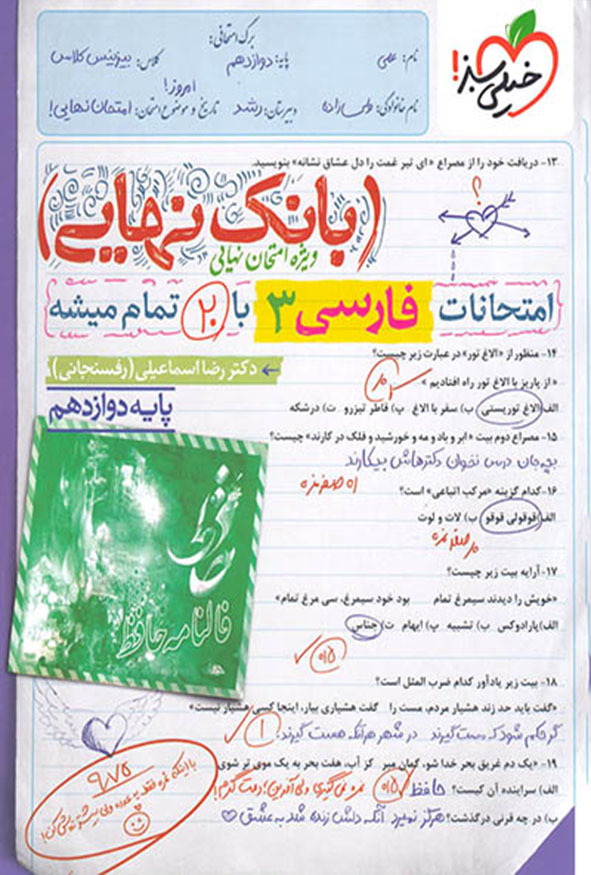 خیلی سبز!
برگ امتحانی:
نام: علی
پایه: دوازدهم
کلاس: بیزینس کلاس
نام خانوادگی: ولی‌زاده
دبیرستان: رشد
تاریخ و موضوع امتحان: امروز! امتحان نهایی!
۱۳- دریافت خود را از مصراع «ای تیر غمت را دل عشاق نشانه» بنویسید.
؟
(بانک نهایی)
ویژه امتحان نهایی
امتحانات فارسی ۳ با ۲۰ تمام میشه
۱۴- منظور از «الاغ تور» در عبارت زیر چیست؟
← دکتر رضا اسماعیلی (رفسنجانی)
«از پاریز با الاغ تور راه افتادیم.»
پایه دوازدهم
الف) الاغ توریستی ب) سفر با الاغ پ) قاطر تیزرو ت) درشکه
۱۵- مصراع دوم بیت «ابر و باد و مه و خورشید و فلک در کارند» چیست؟
بچه‌جان درس نخوان دکترهاش بیکارند
۱۶- کدام گزینه «مرکب اتباعی» است؟
اه صفر نمره
الف) قوقولی قوقو ب) لات و لوت
۱۷- آرایه بیت زیر چیست؟
«خویش را دیدند سیمرغ تمام بود خود سیمرغ، سی مرغ تمام»
الف) پارادوکس ب) تشبیه پ) ایهام ت) جناس
۰/۵
فالنامه حافظ
۱۸- بیت زیر یادآور کدام ضرب المثل است؟
«گفت باید حد زند هشیار مردم، مست را گفت هشیاری بیار، اینجا کسی هشیار نیست»
گر حکم شود که مست گیرند در شهر هر آنکه هست گیرند! ۱
۱۹- «یک دم غریق بحر خدا شو، گمان مبر کز آب، هفت بحر به یک موی تر شوی
الف) سراینده آن کیست؟ حافظ ۰/۵ نمره نمی‌گیری ولی آفرین! دمت گرم!
ب) در چه قرنی درگذشت؟ هرگز نمیرد آنکه دلش زنده شد به عشق